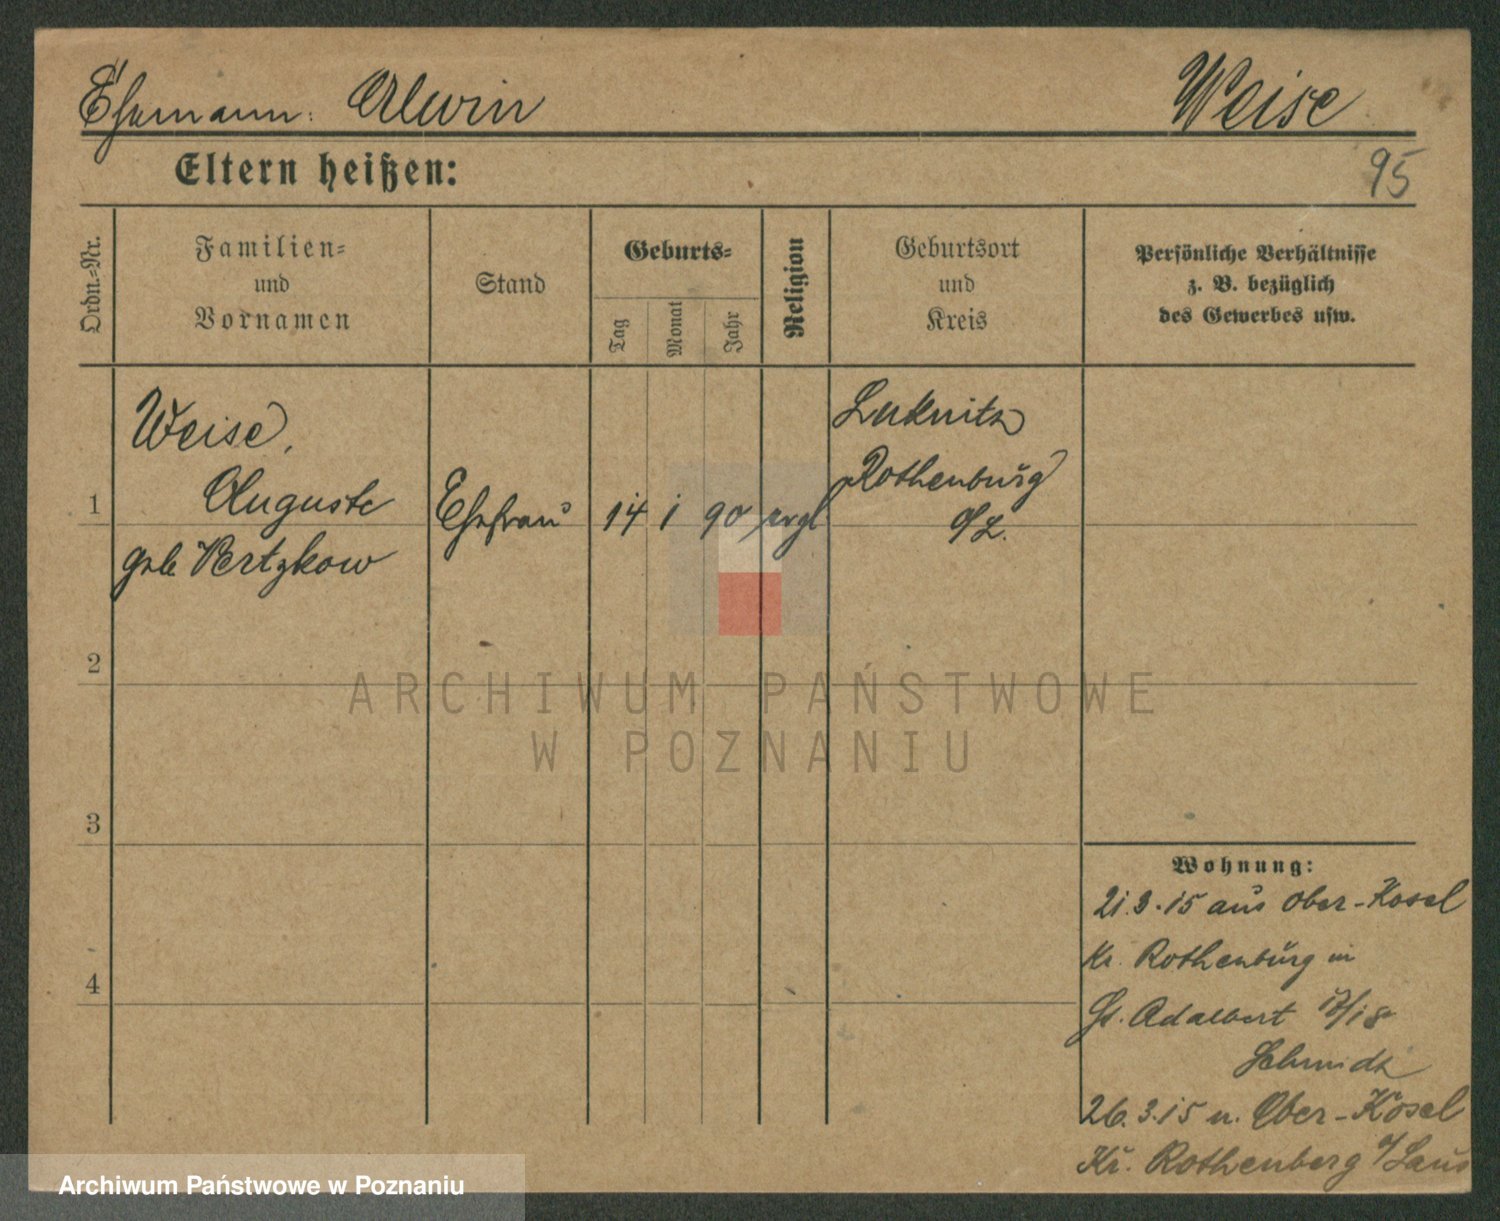 Ehemann: Alwin Weise
Eltern heißen:
95
Ordn.-Nr.
Familien-
und
Vornamen
Stand
Geburts-
Tag
Monat
Jahr
Religion
Geburtsort
und
Kreis
Persönliche Verhältnisse
z. B. bezüglich
des Gewerbes usw.
1
Weise,
Auguste
geb Pertzkow
Ehefrau
14 1 90 evgl
Luknitz
Rothenburg
O/L.
2
3
4
Wohnung:
21.3.15 aus Ober-Kosel
Kr. Rothenburg in
St. Adalbert 17/18
Schmidt
26.3.15 n. Ober-Kosel
Kr. Rothenberg O/Laus
ARCHIWUM PAŃSTWOWE
W POZNANIU
Archiwum Państwowe w Poznaniu